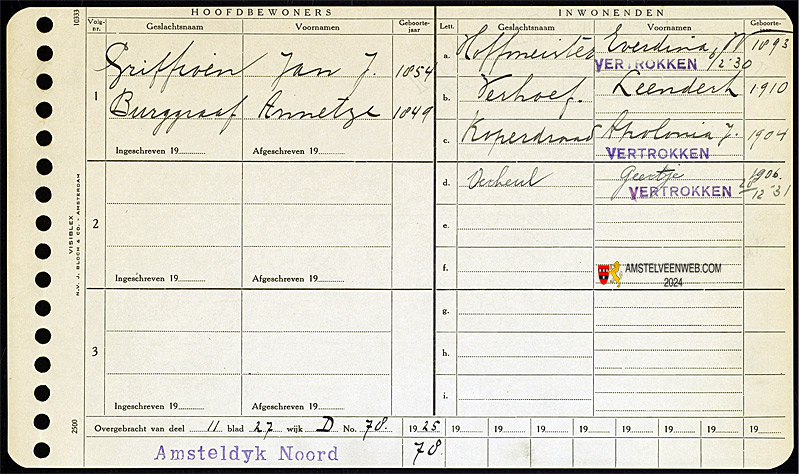 HOOFDBEWONERS
Volg-nr. Geslachtsnaam Voornamen Geboorte-jaar
1 Griffioen Jan J. 1854
Burggraaf Annetze 1849
Ingeschreven 19 Afgeschreven 19
2
Ingeschreven 19 Afgeschreven 19
3
Ingeschreven 19 Afgeschreven 19
INWONENDEN
Lett. Geslachtsnaam Voornamen Geboorte-jaar
a. Hoffmeister Everdina 1893
VERTROKKEN 12-30
b. Verhoef. Leendert 1910
c. Koperdraad Apolonia J. 1904
VERTROKKEN
d. Verheul Geertje 1906.
VERTROKKEN 12-31
e.
f.
AMSTELVEENWEB.COM
2024
g.
h.
i.
Overgebracht van deel 11 blad 27 wijk D No. 78. 1925 19 19 19 19 19 19 19 19
Amsteldyk Noord 78
10333
VISIBLEX
N.V. J. BLOCH & CO. - AMSTERDAM
2500